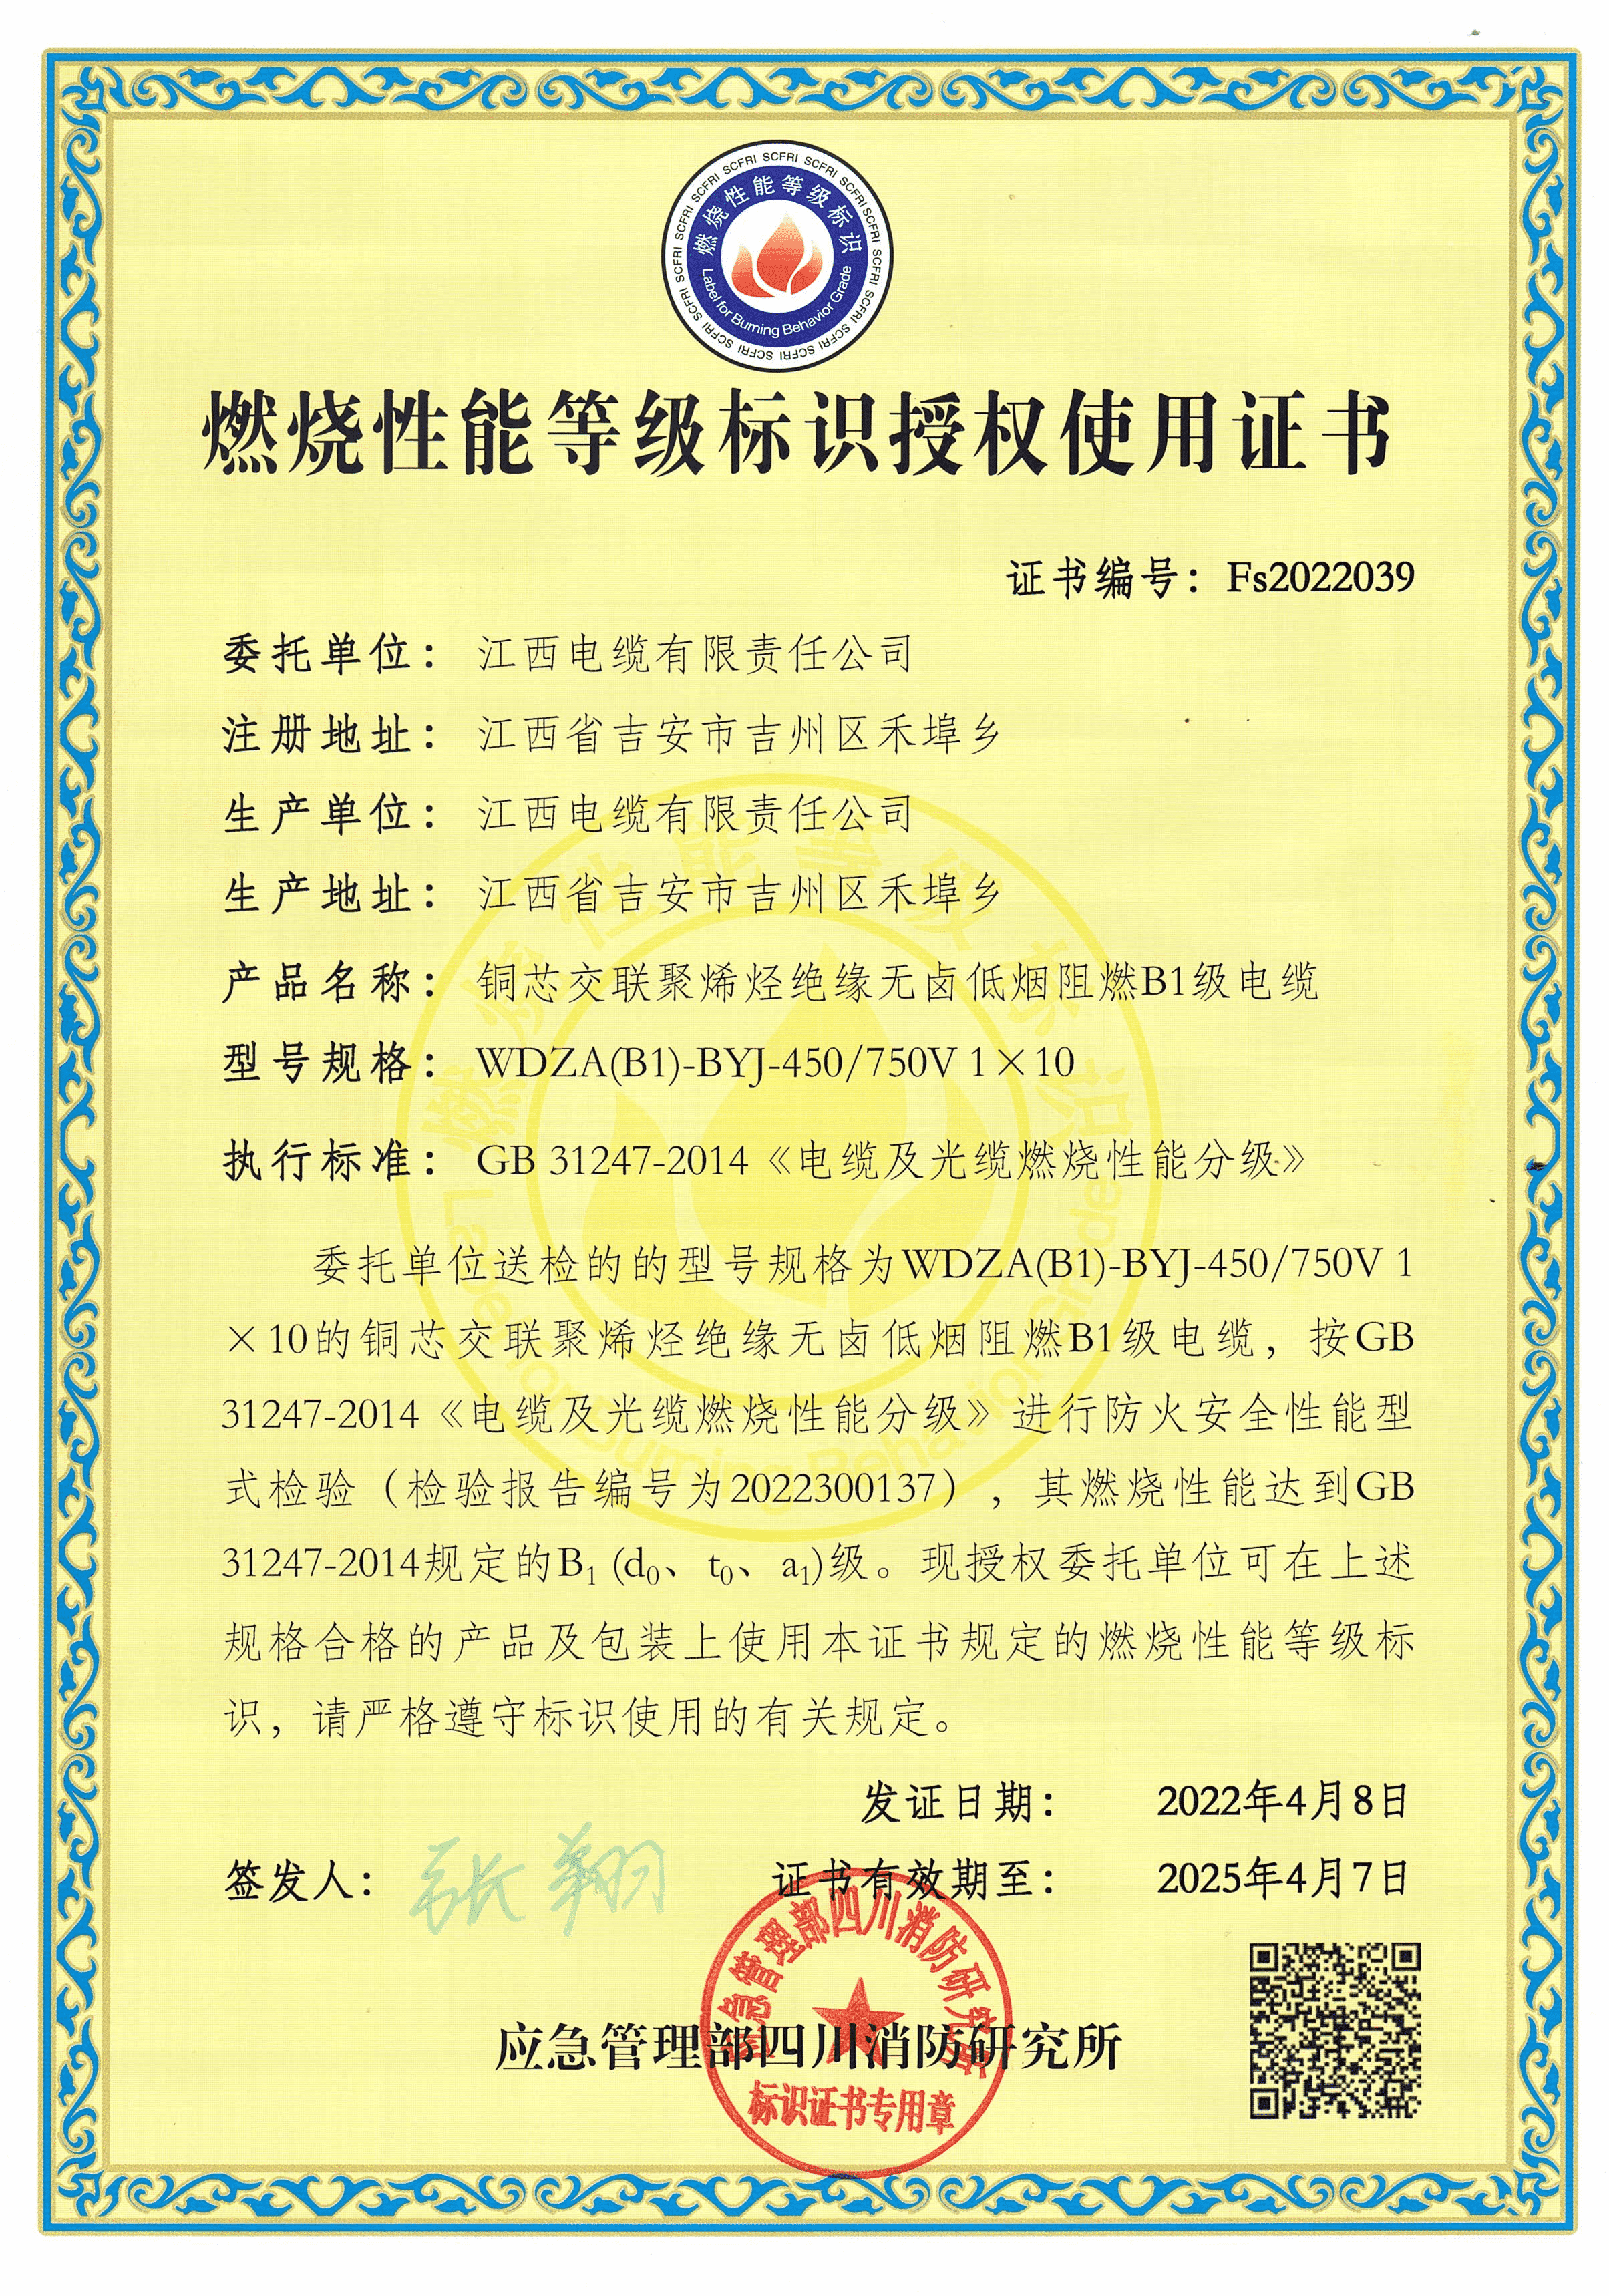 SCFRI SCFRI SCFRI SCFRI SCFRI SCFRI SCFRI SCFRI SCFRI SCFRI SCFRI SCFRI SCFRI SCFRI
燃烧性能等级标识
Label for Burning Behavior Grade
燃烧性能等级标识授权使用证书
证书编号：Fs2022039
委托单位：江西电缆有限责任公司
注册地址：江西省吉安市吉州区禾埠乡
生产单位：江西电缆有限责任公司
生产地址：江西省吉安市吉州区禾埠乡
产品名称：铜芯交联聚烯烃绝缘无卤低烟阻燃B1级电缆
型号规格：WDZA(B1)-BYJ-450/750V 1×10
执行标准：GB 31247-2014《电缆及光缆燃烧性能分级》
委托单位送检的的型号规格为WDZA(B1)-BYJ-450/750V 1
×10的铜芯交联聚烯烃绝缘无卤低烟阻燃B1级电缆，按GB
31247-2014《电缆及光缆燃烧性能分级》进行防火安全性能型
式检验（检验报告编号为2022300137），其燃烧性能达到GB
31247-2014规定的B₁ (d₀、t₀、a₁)级。现授权委托单位可在上述
规格合格的产品及包装上使用本证书规定的燃烧性能等级标
识，请严格遵守标识使用的有关规定。
发证日期：2022年4月8日
签发人：张翔 证书有效期至：2025年4月7日
应急管理部四川消防研究所
应急管理部四川消防研究所
标识证书专用章
燃烧性能等级标识
Label for Burning Behavior Grade